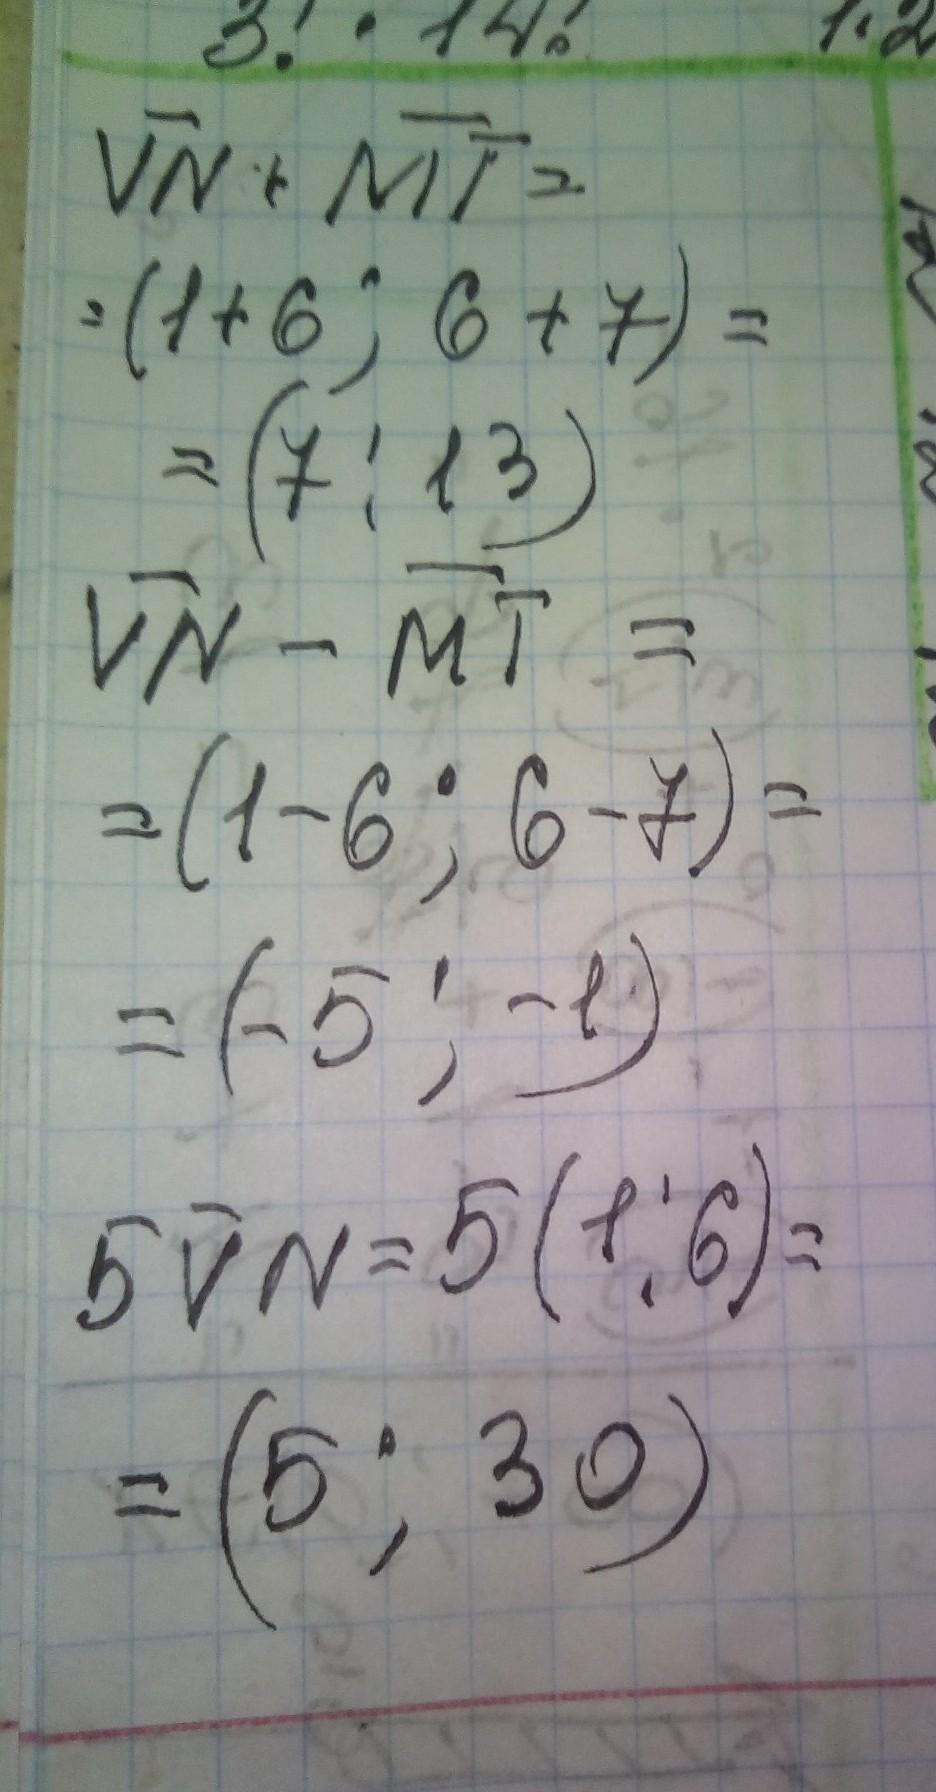 3! · 14! 1·2
VN + MT =
= (1+6; 6+7) =
= (7; 13)
VN - MT =
= (1-6; 6-7) =
= (-5; -1)
5VN = 5(1;6) =
= (5; 30)